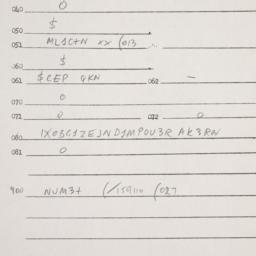 040 0
$
050
051 ML1C+N xx (013
$
060
061 $CEP QKN 062 —
070 0
071 0 072 0
080 1X0BC1ZEJND1MPOU3R AK3RN
081 0
900 NUM3+ (/159110 (027